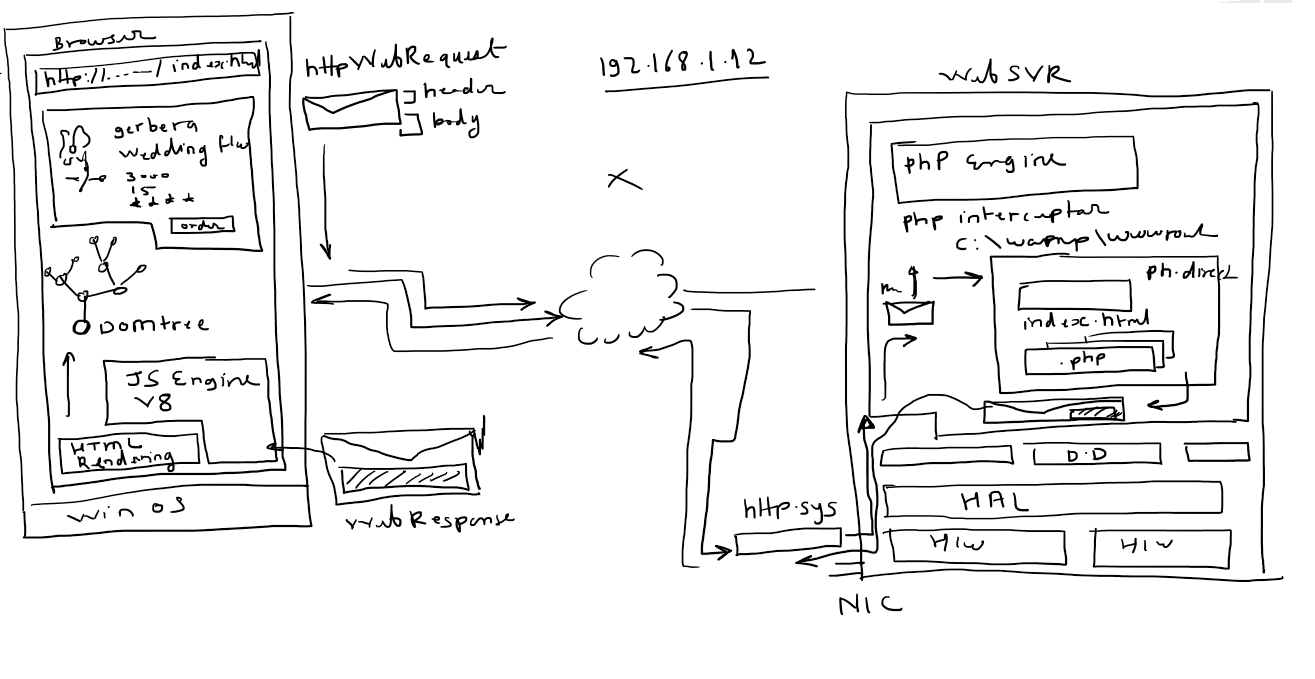 Browser
http://.....-/ index.html
gerbera
wedding flw
3000
15
****
order
DOMtree
JS Engine
V8
HTML
Rendering
Win OS
httpWebRequest
header
body
WebResponse
192.168.1.12
http.sys
Web SVR
PhP Engine
php interceptor
C:\wamp\wwwroot
ph.direct
index.html
.php
D.D
HAL
H/W
H/W
NIC